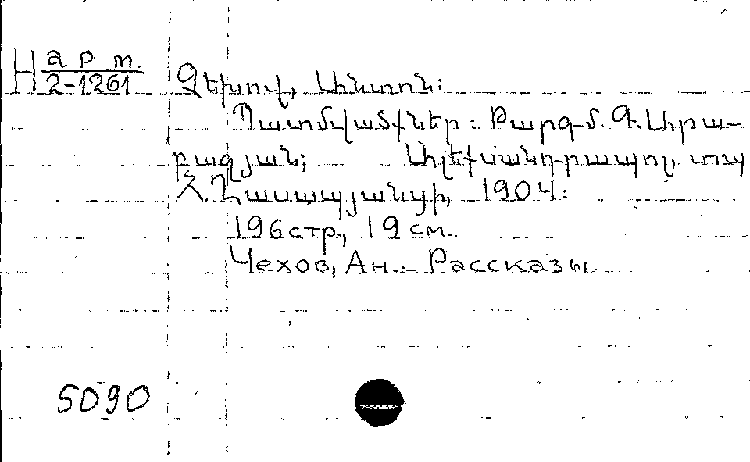 Н арт. Չեխով, Անտոն:
2-1261
Պատմվածքներ: Թարգմ. Գ. Արա-
բաջյան; Ալեքսանդրապոլ, տպ
Հ. Ղասապյանցի, 1904:
196 стр., 19 см.
Чехов, Ан. Рассказы
5090